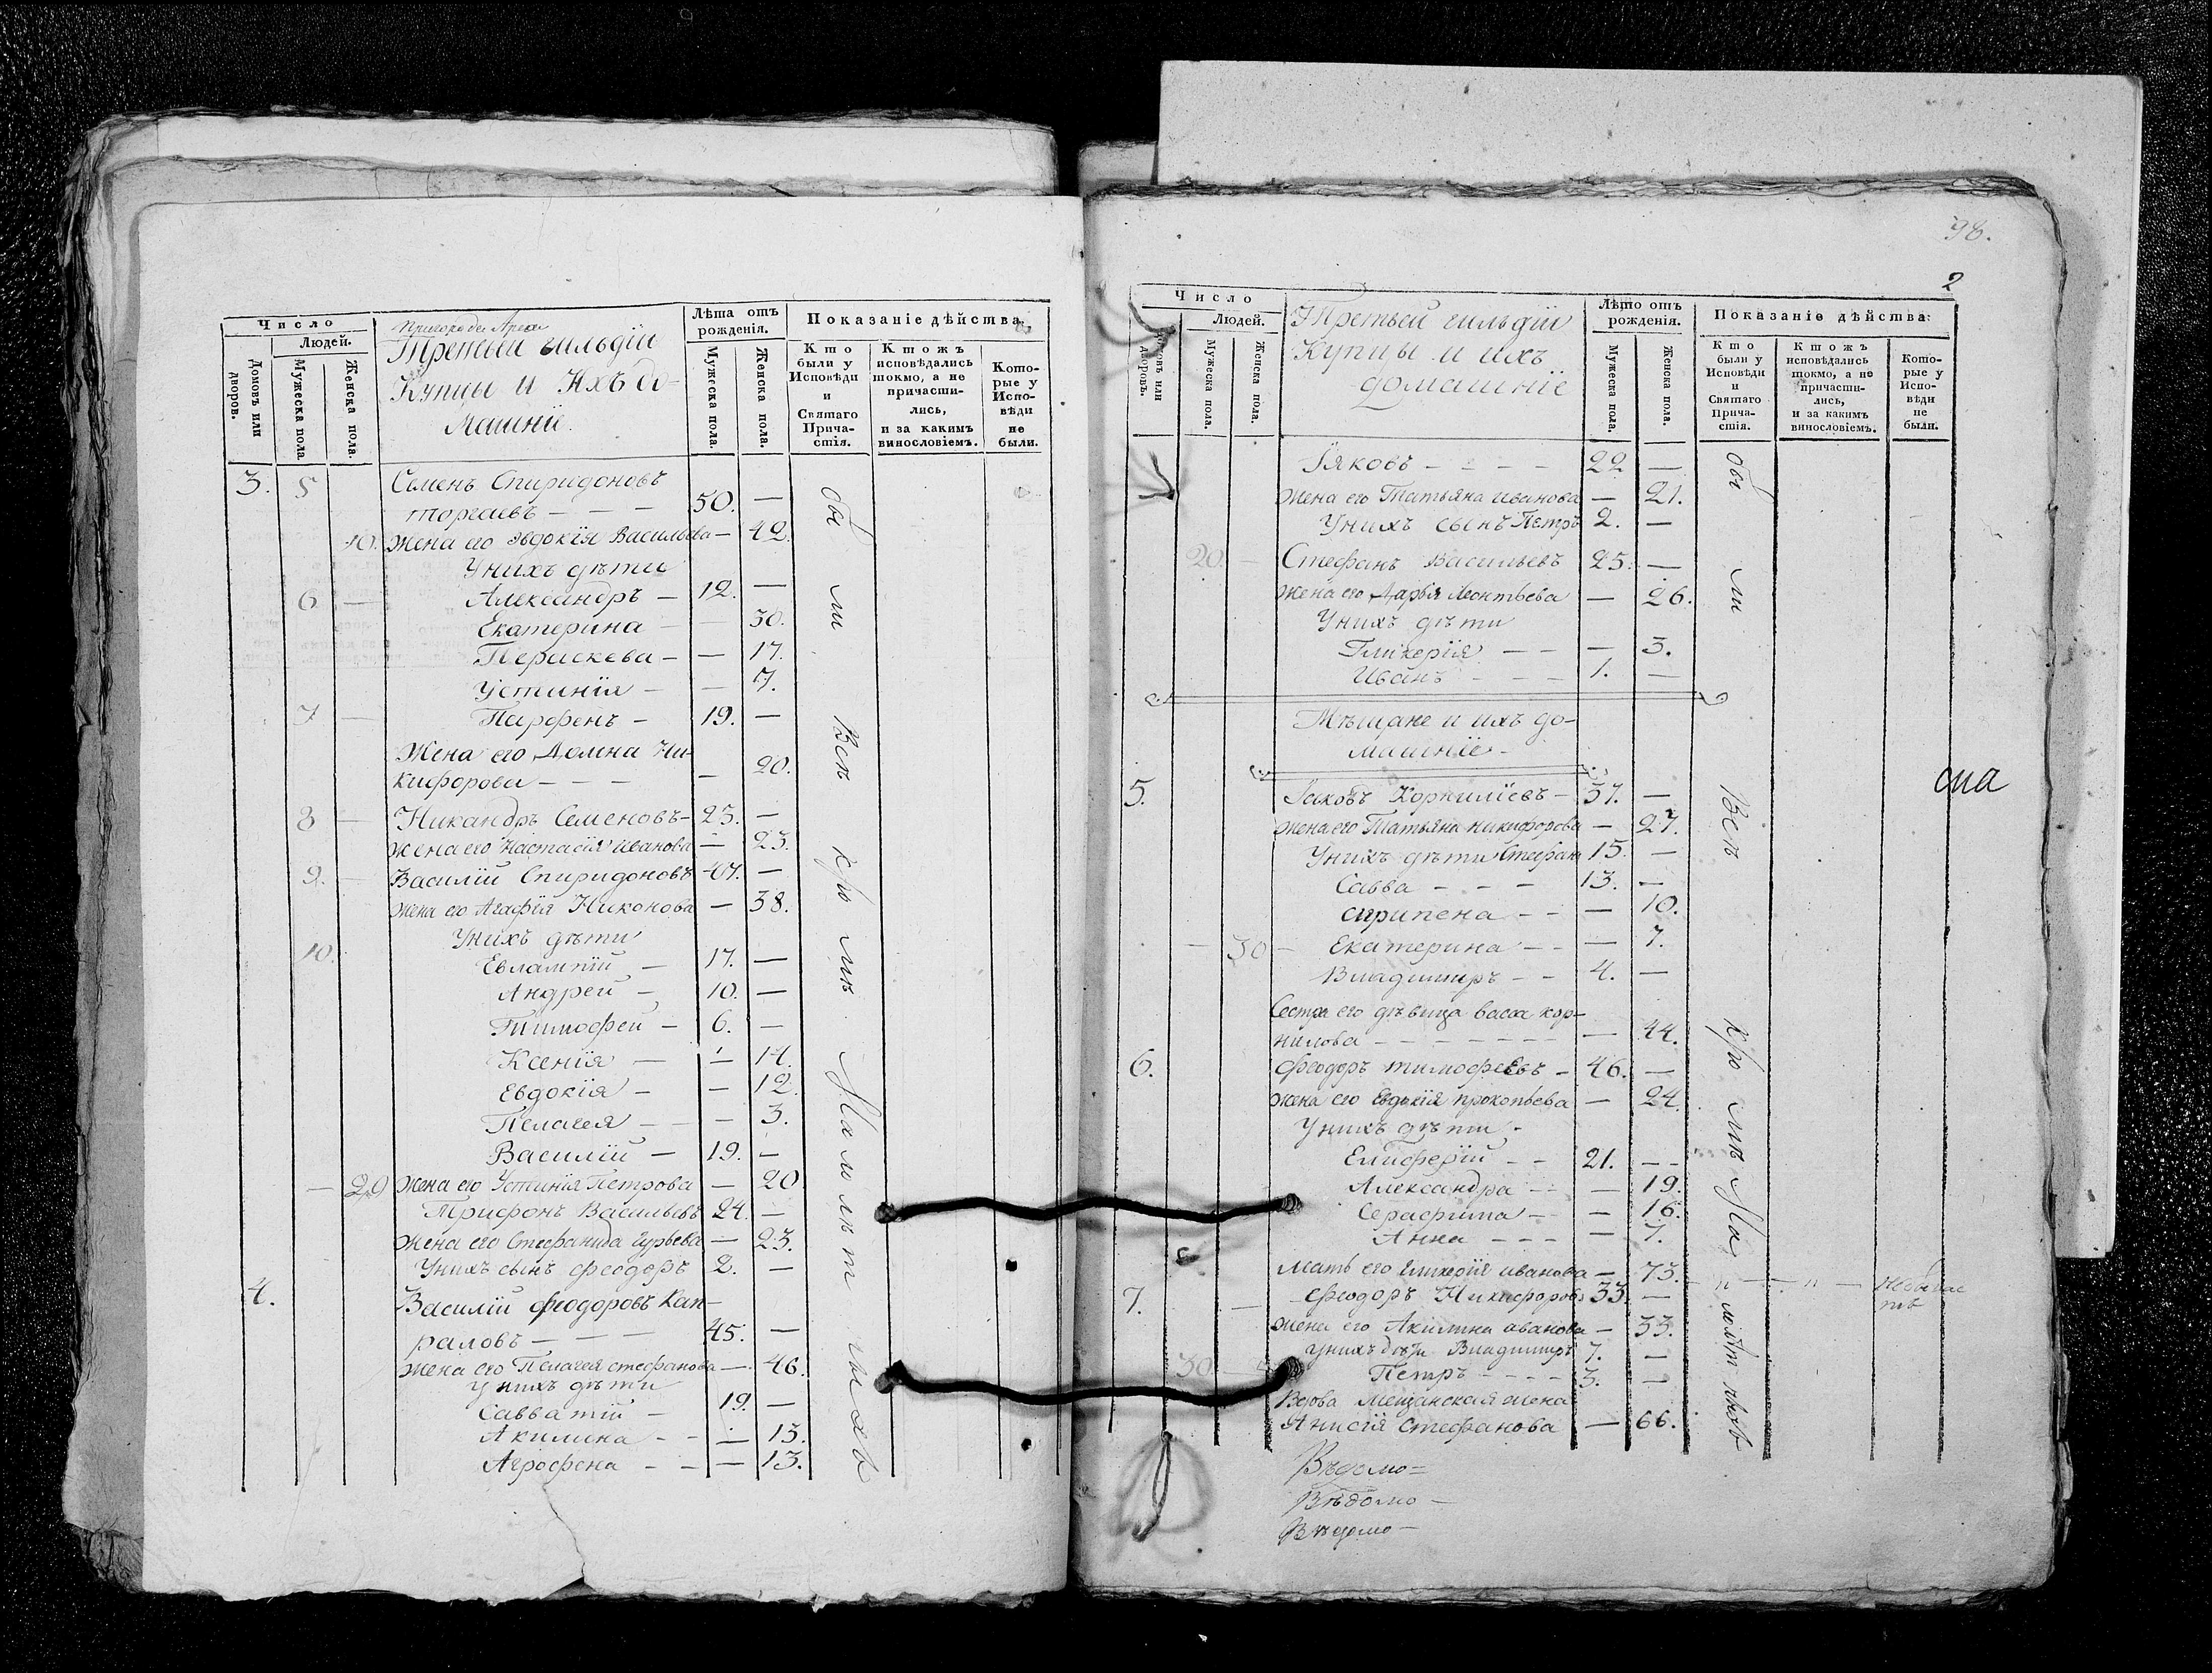 Число
Людей.
Домовъ или дворов.
Мужеска пола.
Женска пола.
Пригорода Арска
Третьей гильдїи
Купцы и Ихъ до-
машнїе.
Лѣта отъ рожденія.
Мужеска пола.
Женска пола.
Показаніе дѣйства.
Кто были у Исповѣди и Святаго Причастія.
Ктожъ исповѣдались токмо, а не причастились, и за какимъ винословіемъ.
Которые у Исповѣди не были.
3. 5 Семенъ Спиридоновъ
торгаевъ — — — 50. —
10. Жена его Эвдокїя Васильева — 42.
Унихъ дѣти
6 — Александръ — 12. —
Екатерина — — 30.
Перискева — — 17.
Устинїя — — 7.
7 — Парфенъ — 19. —
Жена его Домна Ни-
кифорова — — — — 20.
8 — Никандръ Семеновъ — 23. —
Жена его Настасїя Иванова — 23.
9. — Василїй Спиридоновъ 47. —
Жена его Агафїя Никонова — 38.
Унихъ дѣти
10. Евлампїй — 17. —
Андрей — 10. —
Тимофей — 6. —
Ксенїя — — 14.
Евдокїя — — 12.
Пелагея — — — 3.
Василїй — 19. —
— 20 Жена его Устинїя Петрова — 20
Трифонъ Васильевъ 24. —
Жена его Стефанида Гурьева — 23.
Унихъ сынъ феодоръ 2. —
4. Василїй феодоровъ Кап-
раловъ — — — 45. —
Жена его Пелагея стефанова — 46.
Унихъ дѣти
Савватїй — 19. —
Акилина — — — 13.
Агрофена — — — 13.
бы ли Всѣ кро мѣ Малолѣт нихъ
98.
2
Число
Людей.
Домовъ или дворовъ.
Мужеска пола.
Женска пола.
Третьей гильдїи
Купцы и ихъ
домашнїе
Лѣто отъ рожденія.
Мужеска пола.
Женска пола.
Показаніе дѣйства:
Кто были у Исповѣди и Святаго Причастія.
Ктожъ исповѣдались токмо, а не причастились, и за какимъ винословіемъ.
Которые у Исповѣди не были.
Їяковъ — — — — 22 —
Жена его Татьяна иванова — 21.
Унихъ сынъ Петръ 2. —
20. — Стефанъ Васильевъ 25. —
Жена его Дарья Леонтьева — 26.
Унихъ дѣти
Гликерїя — — — 3.
Иванъ — — — 1. —
Мѣщане и ихъ до-
машнїе.
5. Іаковъ Корнилїевъ — 37. —
Жена его Татьяна никифорова — 27.
Унихъ дѣти Стефанъ 15. —
Савва — — — 13. —
агрипена — — — 10.
— 30 — Екатерина — — — 7.
Владимиръ — — 4. —
Сестра его дѣвица васса кор-
нилова — — — — — — — — 44.
6. Феодоръ тимофеевъ — 46. —
Жена его Евдокїя прокопьева — 24.
Унихъ дѣти —
Елиферїй — — 21. — —
Александра — — — 19.
Серафима — — — 16.
Анна — — — — 7.
Мать его гликерїя иванова — 73. — „ — „ — Небывае
тъ
7. — Феодоръ Никифоровъ 33. —
Жена его Акилина иванова — 33.
унихъ дѣти Владимиръ 7. —
30 — Петръ — — — — 3. —
Вдова Мещанская жена
Анисїя Стефанова — 66.
бы ли Всѣ кро мѣ Ма лолѣт нихъ
Вѣдомо =
Вѣдомо —
Вѣдомо —
сла